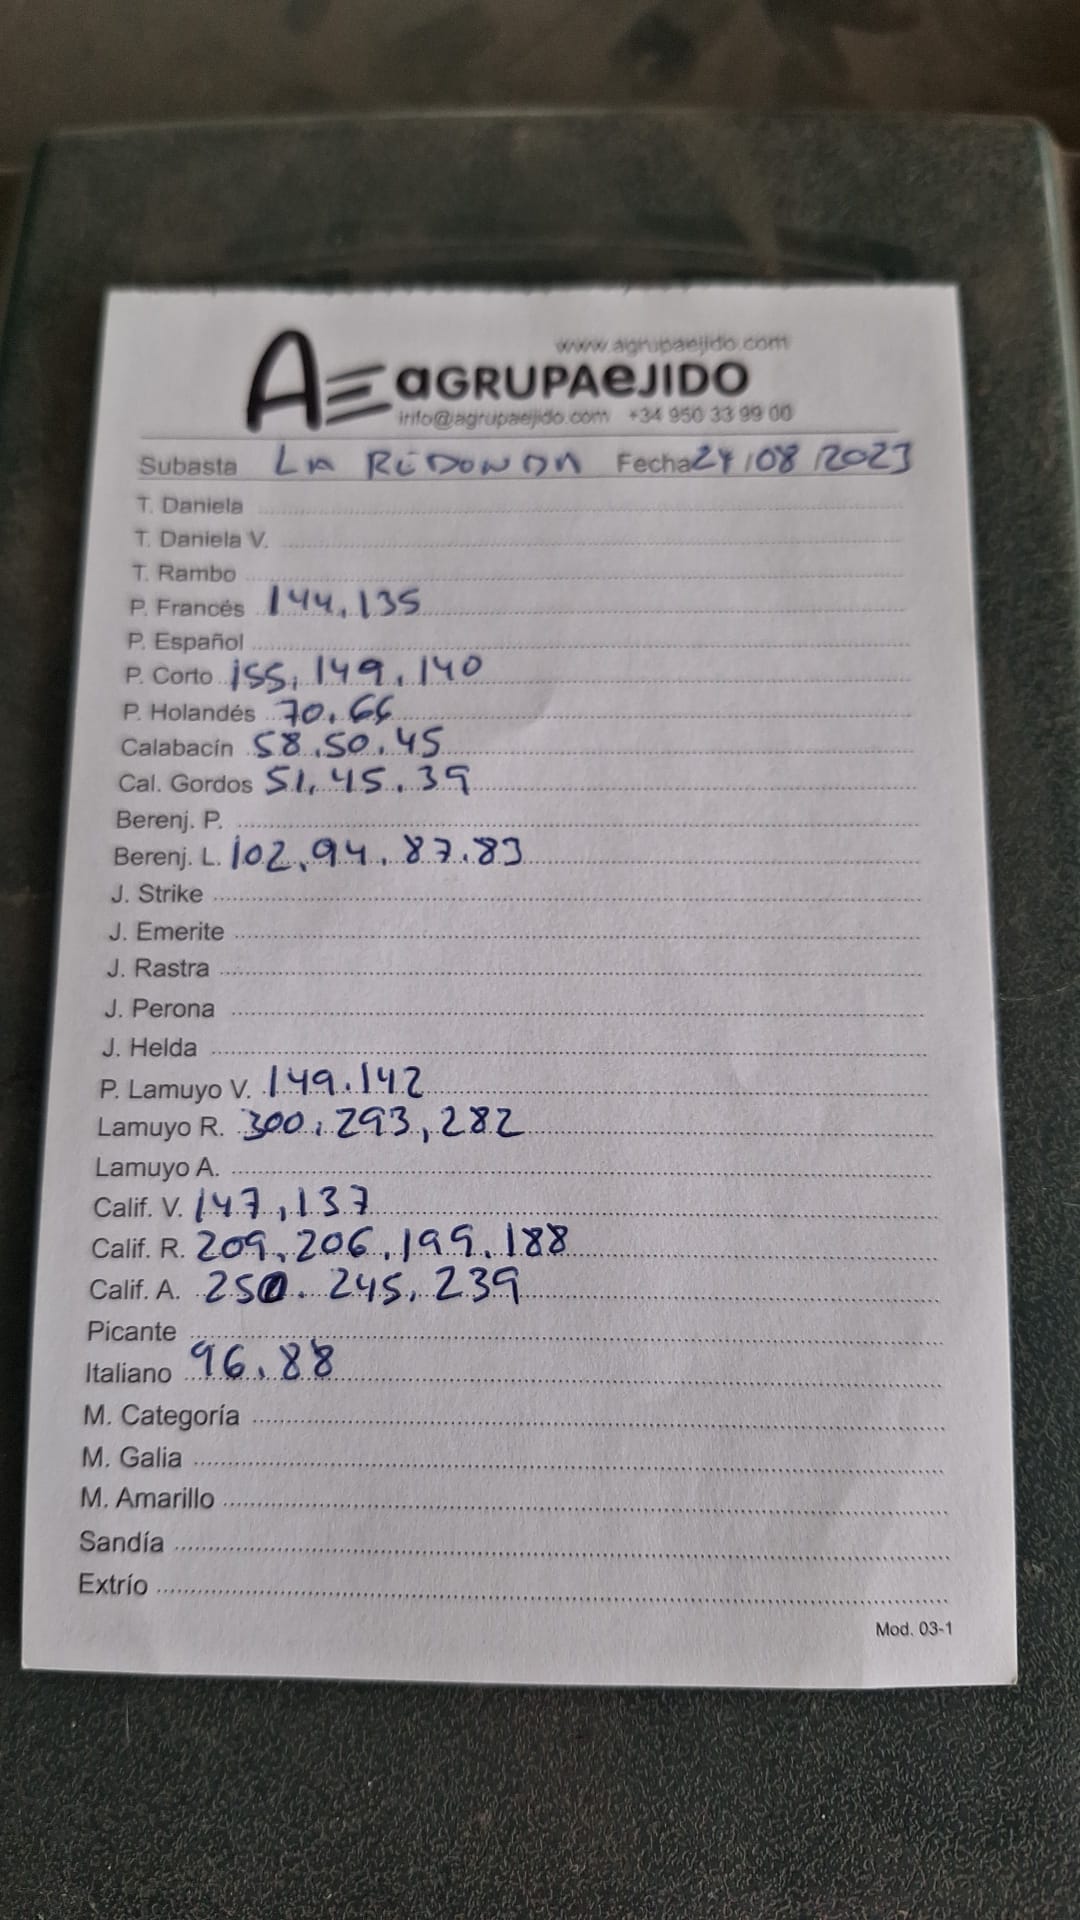 www.agrupaejido.com
AE aGRUPAeJIDO
info@agrupaejido.com +34 950 33 99 00
Subasta LA REDONDA Fecha 24/08/2023
T. Daniela
T. Daniela V.
T. Rambo
P. Francés 144, 135
P. Español
P. Corto 155, 149, 140
P. Holandés 70, 66
Calabacín 58, 50, 45
Cal. Gordos 51, 45, 39
Berenj. P.
Berenj. L. 102, 94, 87, 83
J. Strike
J. Emerite
J. Rastra
J. Perona
J. Helda
P. Lamuyo V. 149, 142
Lamuyo R. 300, 293, 282
Lamuyo A.
Calif. V. 147, 137
Calif. R. 209, 206, 199, 188
Calif. A. 250, 245, 239
Picante
Italiano 96, 88
M. Categoría
M. Galia
M. Amarillo
Sandía
Extrío
Mod. 03-1